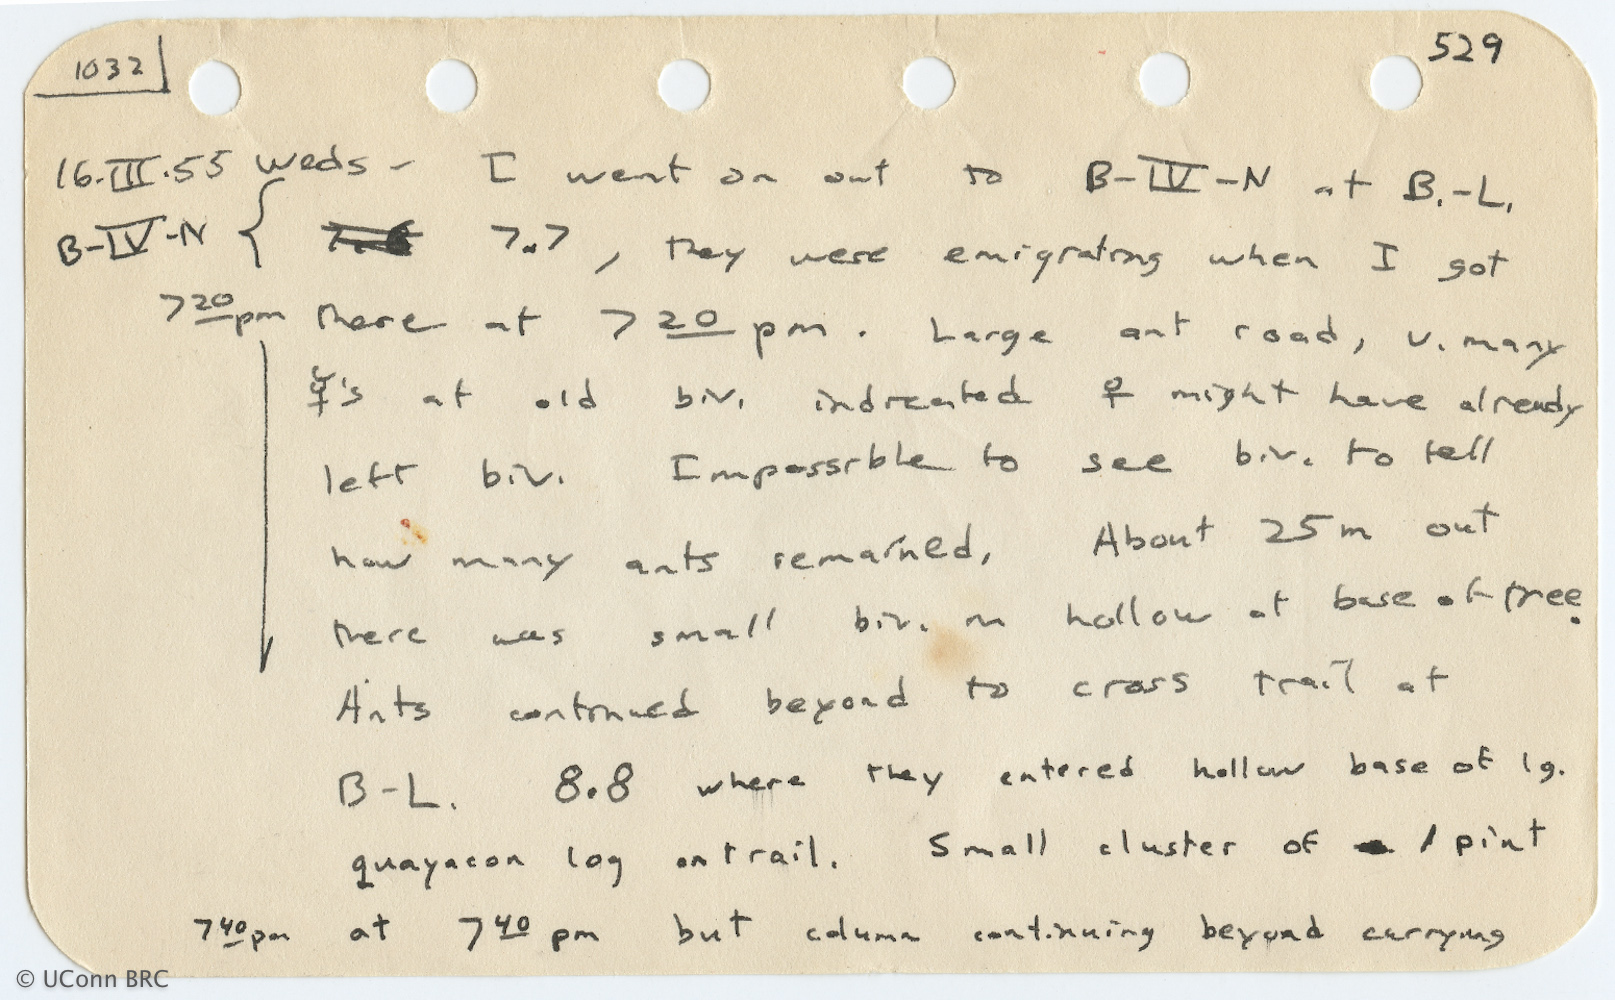 1032
529
16.III.55 Weds - I went on out to B-IV-N at B.-L.
B-IV-N { 7.7, they were emigrating when I got
7 20 pm there at 7 20 pm. Large ant road, v. many
☿'s at old biv. indicated ♀ might have already
left biv. Impossible to see biv. to tell
how many ants remained. About 25m out
there was small biv. in hollow at base of tree.
Ants continued beyond to cross trail at
B-L. 8.8 where they entered hollow base of lg.
quayacon log on trail. Small cluster of 1 pint
7 40 pm at 7 40 pm but column continuing beyond carrying
© UConn BRC